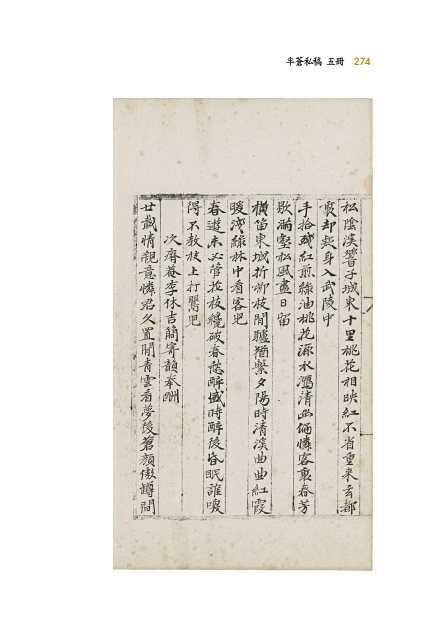 半蒼私稿 五冊 274
松陰漢響子城東十里桃花相映紅不省重來玄都
裏却疑身入武陵中
手拾殘紅煎綠油桃花源水瀉清幽倆憐客裏春芳
歇滿壑松風盡日留
橫笛東城折柳枝閒驢猶繫夕陽時清溪曲曲紅霞
暖淺綠林中看客肥
春遊未必管花枝纔破春愁醉盛時醉後昏眠誰喚
得不教枝上打鸎兒
次庵李休吉簡寄韻奉酬
廿載情親意憐君久置閒青雲看夢後蒼顏傲罇間